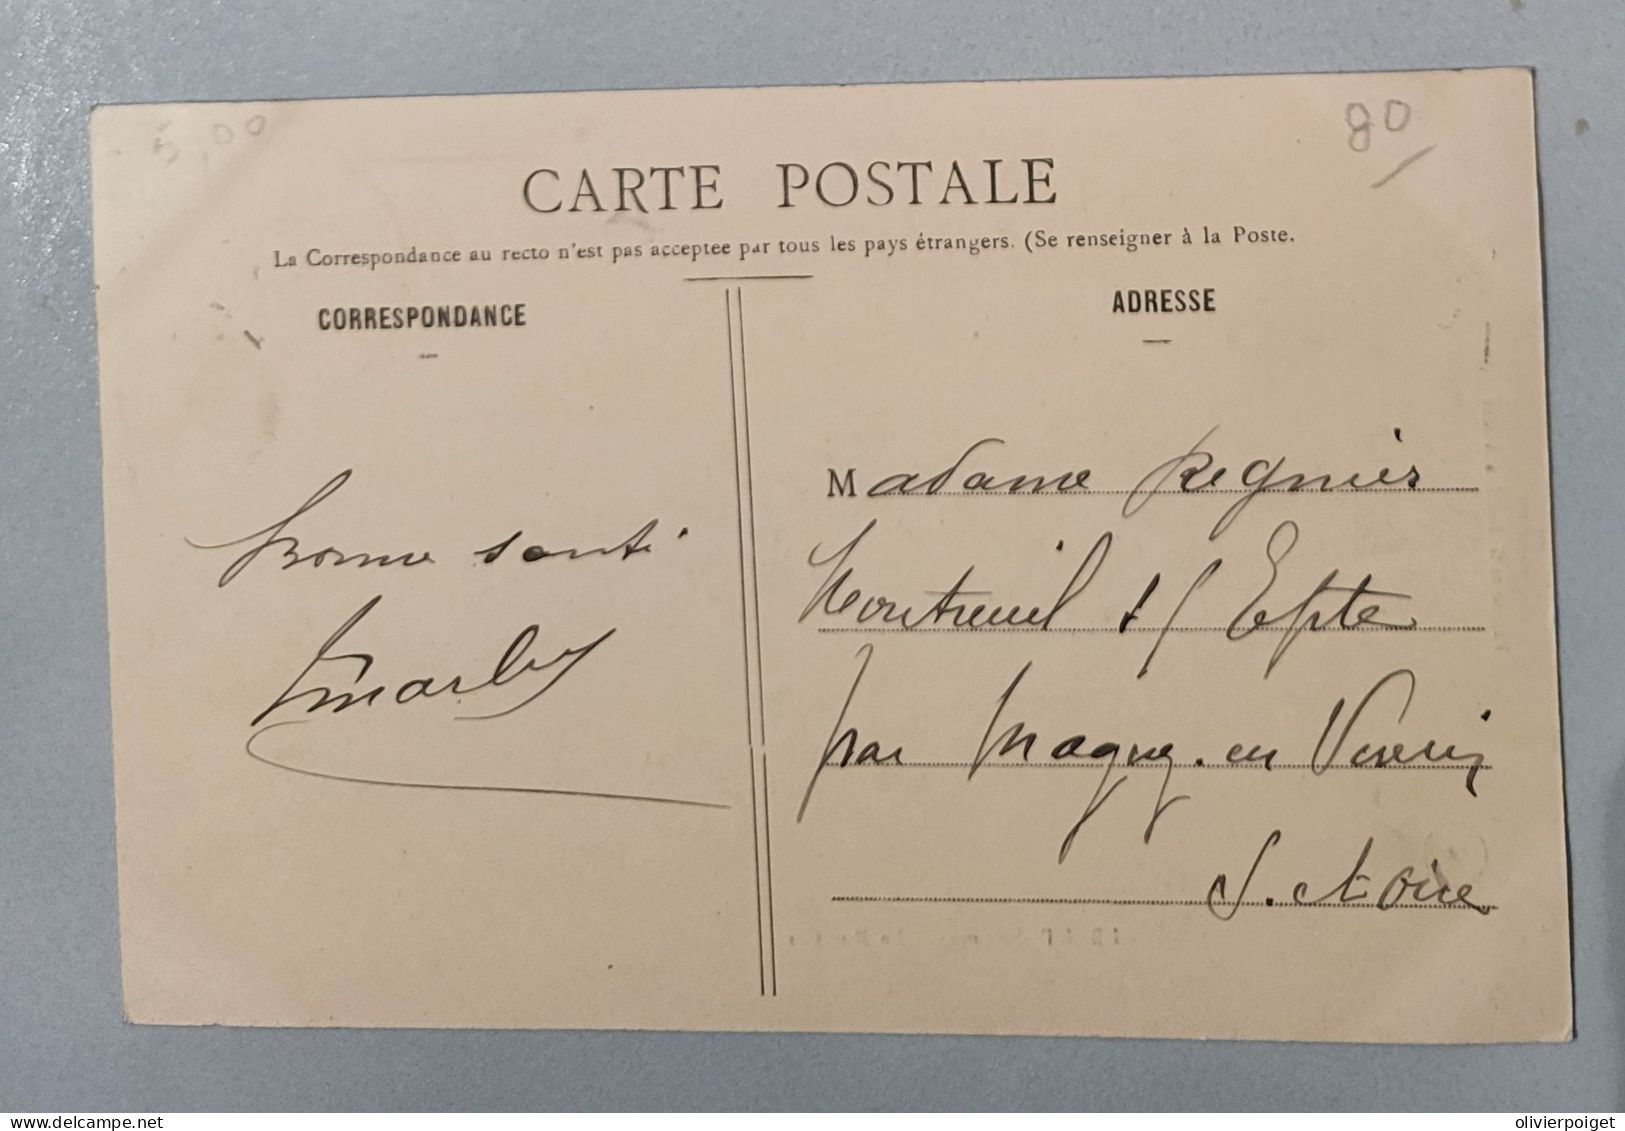 5,00
80
CARTE POSTALE
La Correspondance au recto n'est pas acceptée par tous les pays étrangers. (Se renseigner à la Poste.
CORRESPONDANCE
ADRESSE
Bonne santé
Madame Regnier
Montreuil s/ Epte
par Magny-en Vexin
S. et Oise
olivierpoiget